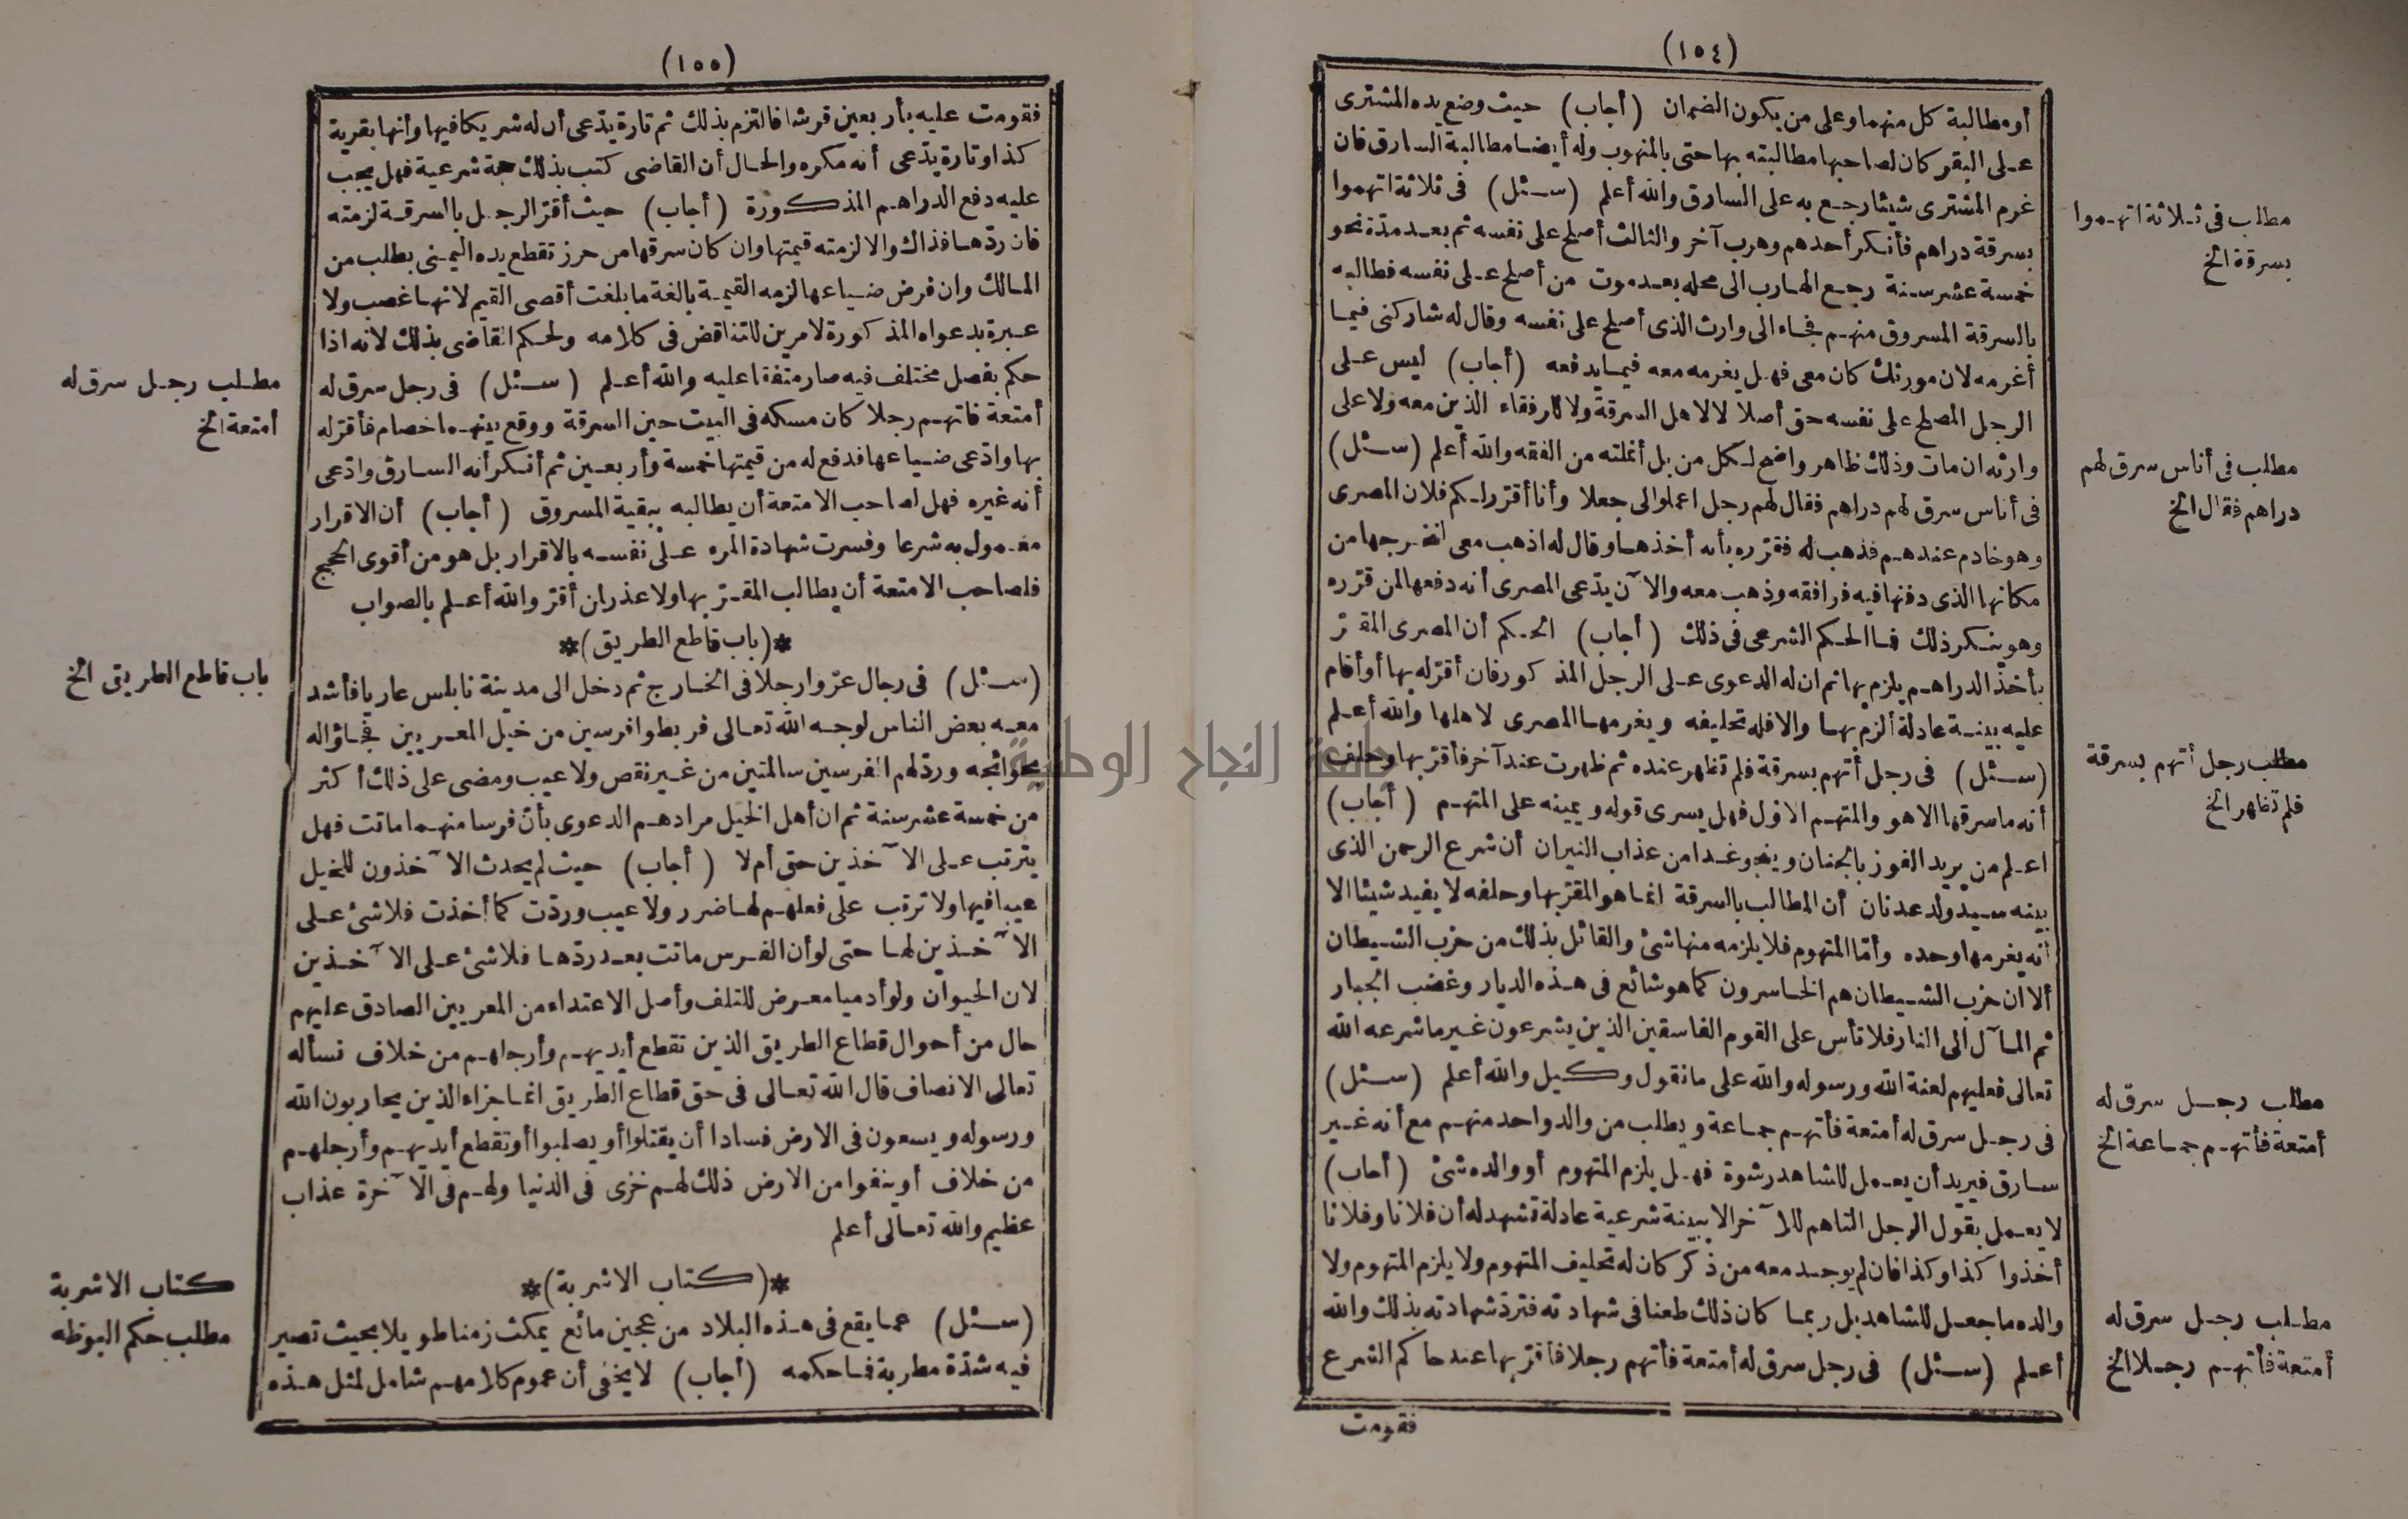 (١٥٤)
أو مطالبة كل منهما وعلى من يكون الضمان (أجاب) حيث وضع يده المشترى
على البقر كان لصاحبها مطالبته بها حتى بالمنهوب وله أيضا مطالبة السارق فان
غرم المشترى شيئا رجع به على السارق والله أعلم (سئل) فى ثلاثة اتهموا
بسرقة دراهم فأنكر أحدهم وهرب آخر والثالث أصلح على نفسه ثم بعد مدة نحو
خمسة عشر سنة رجع الهارب الى محله بعد موت من أصلح على نفسه فطالبه
بالسرقة المسروق منهم فجاء الى وارث الذى أصلح على نفسه وقال له شاركنى فيما
أغرمه لان مورثك كان معى فهل يغرمه معه فيما يدفعه (أجاب) ليس على
الرجل المصلح على نفسه حق أصلا لا لاهل السرقة ولا لارفقاء الذين معه ولا على
وارثه ان مات وذلك ظاهر واضح لكل من بل أغلته من الفقه والله أعلم (سئل)
فى أناس سرق لهم دراهم فقال لهم رجل اعملوا لى جعلا وأنا أقرر لكم فلان المصرى
وهو خادم عندهم فذهب له فقرره بأنه أخذها وقال له اذهب معى لنخرجها من
مكانها الذى دفنها فيه فرافقه وذهب معه والآن يدعى المصرى أنه دفعها لمن قرره
وهو ينكر ذلك فما الحكم الشرعى فى ذلك (أجاب) الحكم أن المصرى المقر
بأخذ الدراهم يلزم بها ثم ان له الدعوى على الرجل المذكور فان أقر له بها أو أقام
عليه بينة عادلة ألزم بها والا فله تحليفه ويغرمها المصرى لاهلها والله أعلم
(سئل) فى رجل أتهم بسرقة فلم تظهر عنده ثم ظهرت عند آخر فأقر بها وحلف
أنه ما سرقها الا هو والمتهم الاول فهل يسرى قوله ويمينه على المتهم (أجاب)
اعلم من يريد الفوز بالجنان وينجو غدا من عذاب النيران أن شرع الرحمن الذى
بينه سيد ولد عدنان أن المطالب بالسرقة انما هو المقر بها وحلفه لا يفيد شيئا الا
أنه يغرمها وحده وأما المتهوم فلا يلزمه منها شئ والقائل بذلك من حزب الشيطان
ألا ان حزب الشيطان هم الخاسرون كما هو شائع فى هذه الديار وغضب الجبار
ثم المآل الى النار فلا تأس على القوم الفاسقين الذين يشرعون غير ما شرعه الله
تعالى فعليهم لعنة الله ورسوله والله على ما نقول وكيل والله أعلم (سئل)
فى رجل سرق له أمتعة فأتهم جماعة ويطلب من والد واحد منهم مع أنه غير
سارق فيريد أن يعمل للشاهد رشوة فهل يلزم المتهوم أو والده شئ (أجاب)
لا يعمل بقول الرجل التاهم للآخر الا ببينة شرعية عادلة تشهد له أن فلانا وفلانا
أخذوا كذا وكذا فان لم يوجد معه من ذكر كان له تحليف المتهوم ولا يلزم المتهوم ولا
والده ما جعل للشاهد بل ربما كان ذلك طعنا فى شهادته فترد شهادته بذلك والله
أعلم (سئل) فى رجل سرق له أمتعة فأتهم رجلا فأقر بها عند حاكم الشرع
فقومت
مطلب فى ثلاثة اتهموا
بسرقة الخ
مطلب فى أناس سرق لهم
دراهم فقال الخ
مطلب رجل أتهم بسرقة
فلم تظهر الخ
مطلب رجل سرق له
أمتعة فأتهم جماعة الخ
مطلب رجل سرق له
أمتعة فأتهم رجلا الخ
(١٥٥)
فقومت عليه بأربعين قرشا فالتزم بذلك ثم تارة يدعى أن له شريكا فيها وأنها بقرية
كذا وتارة يدعى أنه مكره والحال أن القاضى كتب بذلك حجة شرعية فهل يجب
عليه دفع الدراهم المذكورة (أجاب) حيث أقر الرجل بالسرقة لزمته
فان ردها فذاك والا لزمته قيمتها وان كان سرقها من حرز تقطع يده اليمنى بطلب من
المالك وان فرض ضياعها لزمه القيمة بالغة ما بلغت أقصى القيم لانها غصب ولا
عبرة بدعواه المذكورة لامرين للتناقض فى كلامه ولحكم القاضى بذلك لانه اذا
حكم بفصل مختلف فيه صار متفقا عليه والله أعلم (سئل) فى رجل سرق له
أمتعة فاتهم رجلا كان مسكه فى البيت حين السرقة ووقع بينهما خصام فأقر له
بها وادعى ضياعها فدفع له من قيمتها خمسة وأربعين ثم أنكر أنه السارق وادعى
أنه غيره فهل لصاحب الامتعة أن يطالبه ببقية المسروق (أجاب) أن الاقرار
معمول به شرعا وفسرت شهادة المرء على نفسه بالاقرار بل هو من أقوى الحجج
فلصاحب الامتعة أن يطالب المقر بها ولا عذر ان أقر والله أعلم بالصواب
*(باب قاطع الطريق)*
(سئل) فى رجال عزوا رجلا فى الخارج ثم دخل الى مدينة نابلس عاريا فأشد
معه بعض الناس لوجه الله تعالى فربطوا فرسين من خيل المعريين فجاؤا له
بحوائجه ورد لهم الفرسين سالمتين من غير نقص ولا عيب ومضى على ذلك أكثر
من خمسة عشر سنة ثم ان أهل الخيل مرادهم الدعوى بأن فرسا منهما ماتت فهل
يترتب على الآخذين حتى أم لا (أجاب) حيث لم يحدث الآخذون للخيل
عيبا فيها ولا ترتب على فعلهم لها ضرر ولا عيب وردت كما أخذت فلا شئ على
الآخذين لها حتى لو أن الفرس ماتت بعد ردها فلا شئ على الآخذين
لان الحيوان ولو أدميا معرض للتلف وأصل الاعتداء من المعريين الصادق عليهم
حال من أحوال قطاع الطريق الذين تقطع أيديهم وأرجلهم من خلاف نسأله
تعالى الانصاف قال الله تعالى فى حق قطاع الطريق انما جزاء الذين يحاربون الله
ورسوله ويسعون فى الارض فسادا أن يقتلوا أو يصلبوا أو تقطع أيديهم وأرجلهم
من خلاف أو ينفوا من الارض ذلك لهم خزى فى الدنيا ولهم فى الآخرة عذاب
عظيم والله تعالى أعلم
*(كتاب الاشربة)*
(سئل) عما يقع فى هذه البلاد من عجين مائع يمكث زمنا طويلا بحيث تصير
فيه شدة مطربة فما حكمه (أجاب) لا يخفى أن عموم كلامهم شامل لمثل هذه
مطلب رجل سرق له
أمتعة الخ
باب قاطع الطريق الخ
كتاب الاشربة
مطلب حكم البوظه
جامعة النجاح الوطنية